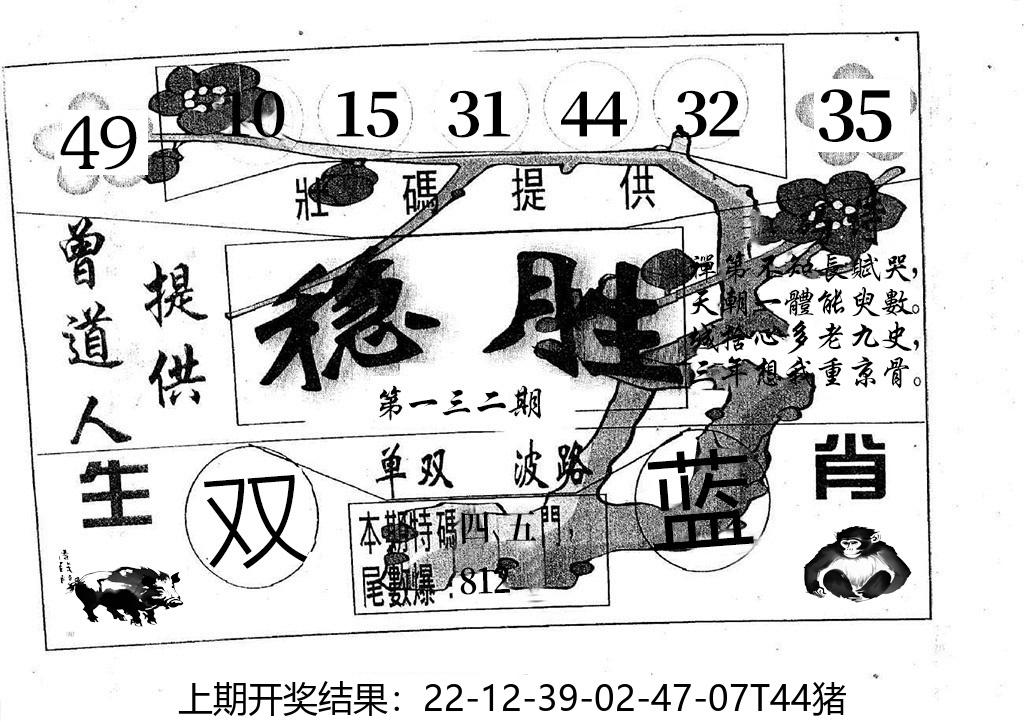 49 10 15 31 44 32 35
壯碼提供
曾道人
提供
穩胜
第一三二期
禪第不知長賦哭，
天朝一體能臾數。
城捨心多老九史，
三年想我重京骨。
单双 波路
生肖
双
蓝
本期特碼四、五門，
尾數爆：812
上期开奖结果：22-12-39-02-47-07T44猪